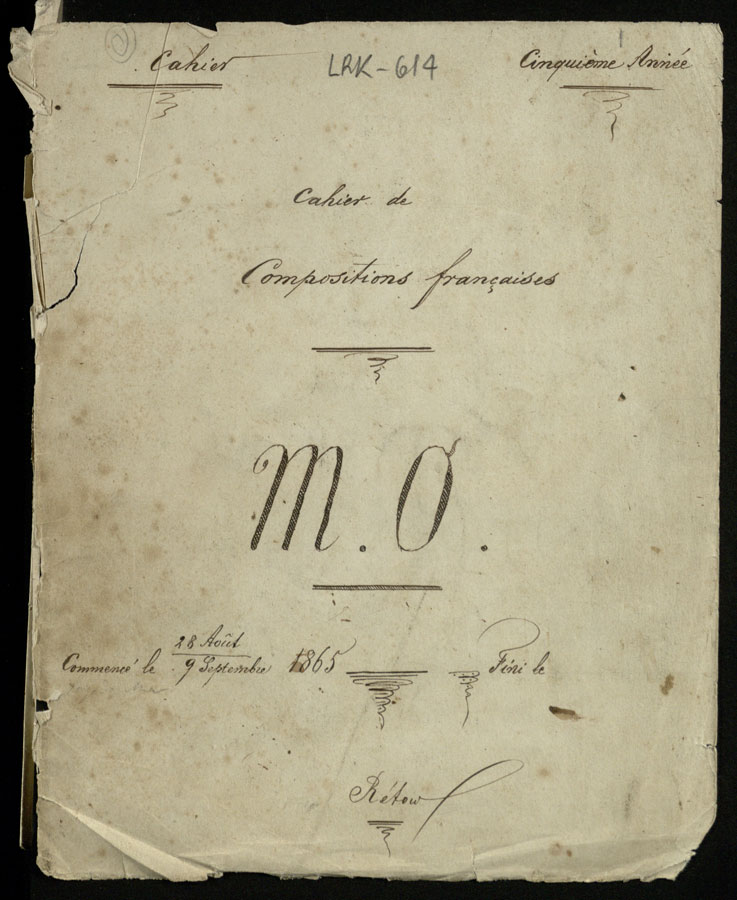 Cahier LRK-614 Cinquième Année
Cahier de
Compositions françaises
M. O.
28 Août
Commencé le 9 Septembre 1865 Fini le